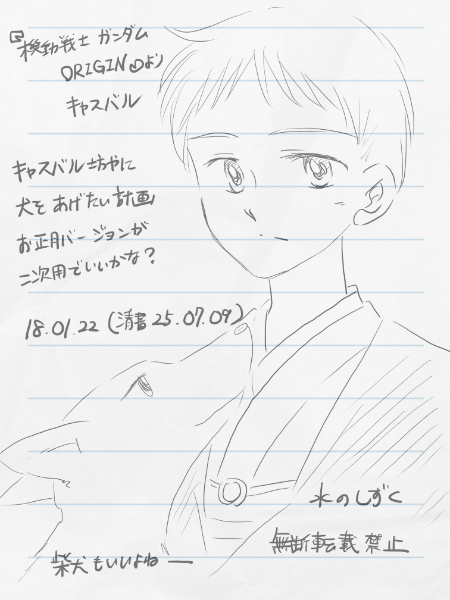 機動戦士 ガンダム
ORIGINのより
キャスバル
キャスバル坊やに
犬をあげたい計画
お正月バージョンが
二次用でいいかな?
18.01.22(清書25.07.09)
水のしずく
無断転載禁止
柴犬もいいよねー